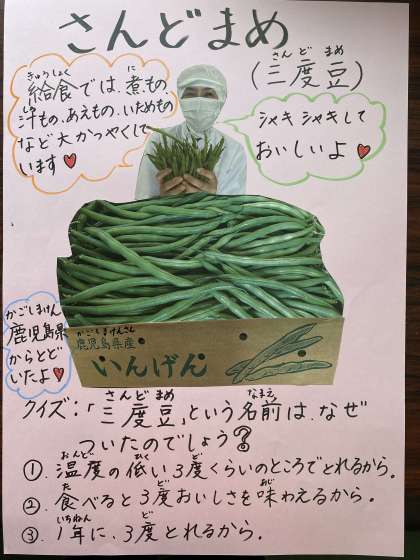 さんどまめ
さんどまめ
(三度豆)
きゅうしょく に
給食では、煮もの、
しる
汁もの、あえもの、いためもの
など大かつやくして
います♥
シャキシャキして
おいしいよ♥
かごしまけん
鹿児島県
からとど
いたよ♥
かごしまけんさん
鹿児島県産
いんげん
さんどまめ なまえ
クイズ:「三度豆」という名前は、なぜ
ついたのでしょう?
おんど ひく ど
①.温度の低い3度くらいのところでとれるから。
た ど あじ
②.食べると3度おいしさを味わえるから。
いちねん ど
③.1年に、3度とれるから。